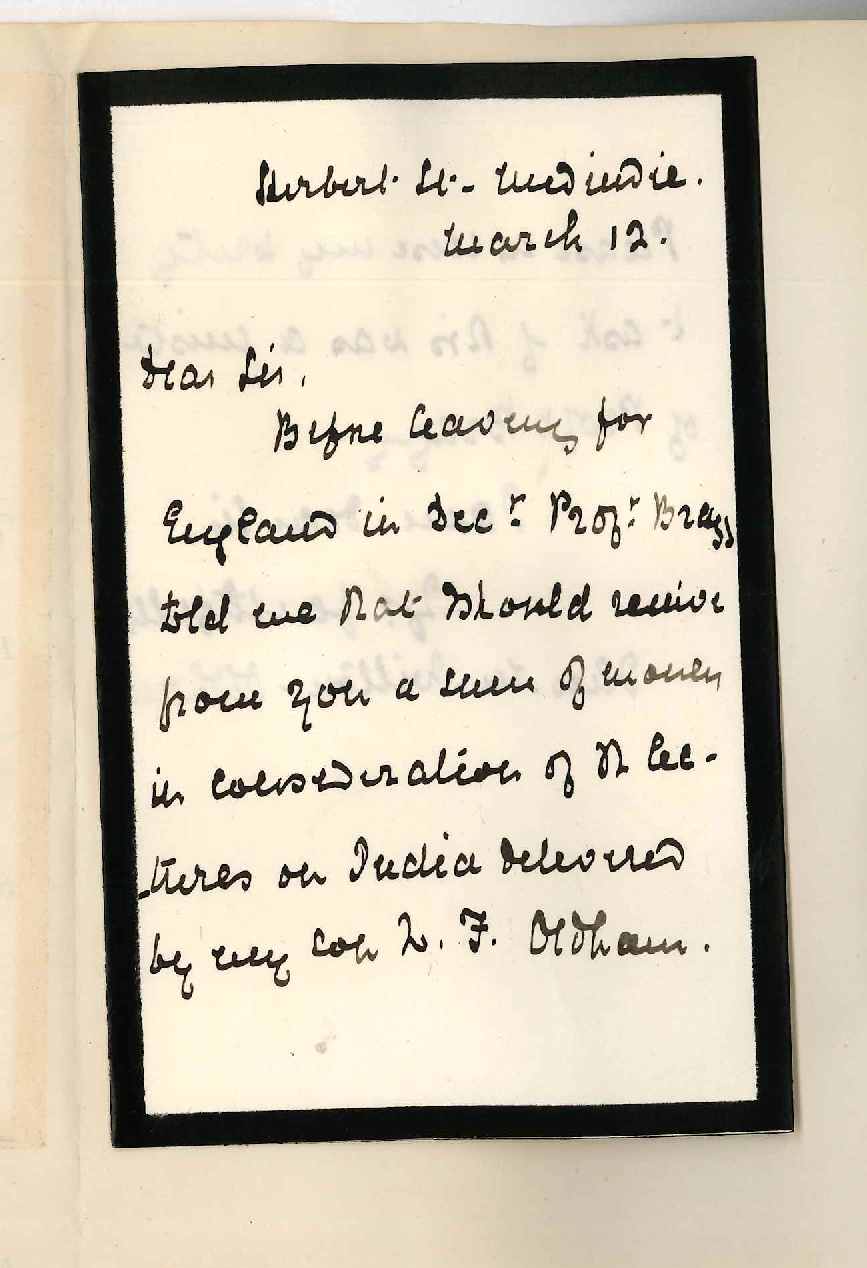 Herbert St. Medindie.
March 12.
Dear Sir,
Before leaving for
England in Decr. Profr. Bragg
told me that I should receive
from you a sum of money
in consideration of the lec-
tures on India delivered
by my son L. F. Oldham.